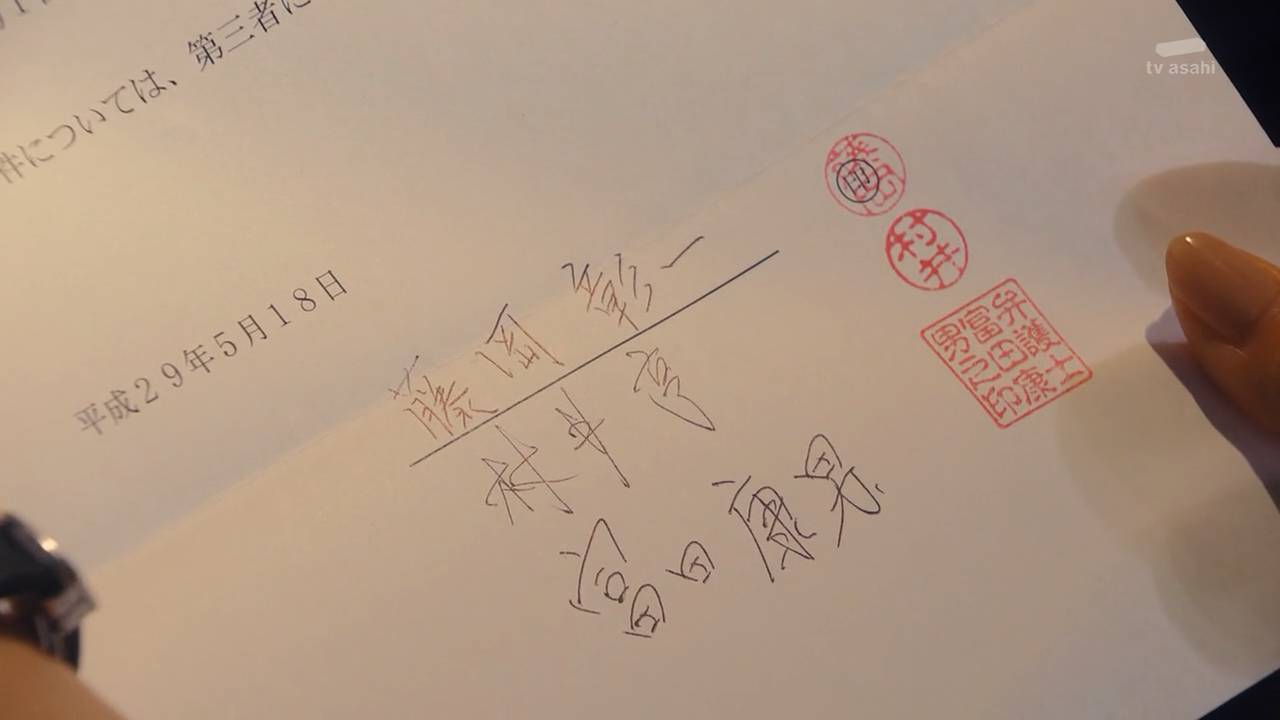 件については、第三者に
平成29年5月18日
藤岡 彰一
村井 亨
富田康男
藤岡
印
村井
弁護士
富田康
男之印
tv asahi